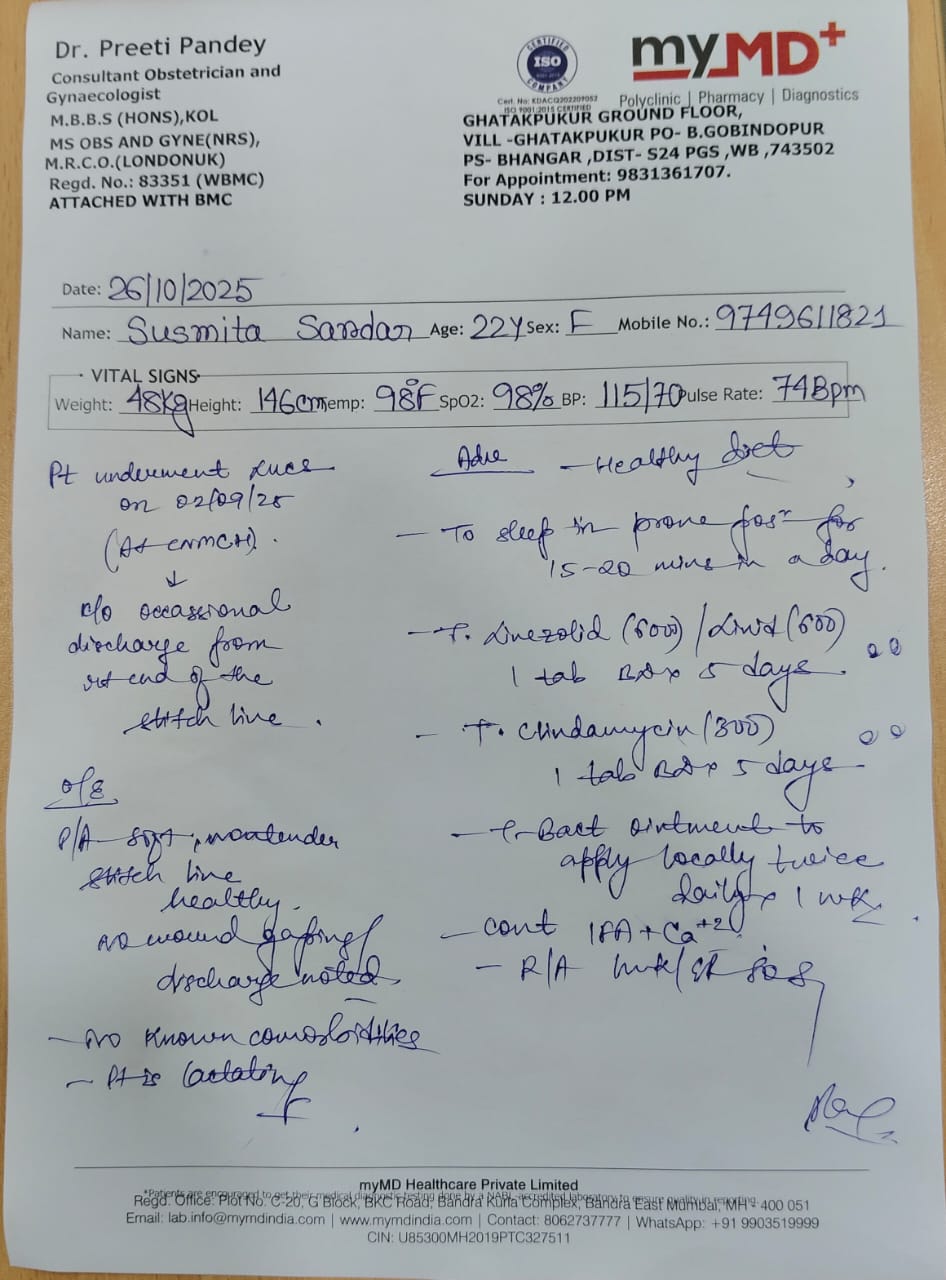 Dr. Preeti Pandey
Consultant Obstetrician and
Gynaecologist
M.B.B.S (HONS),KOL
MS OBS AND GYNE(NRS),
M.R.C.O.(LONDONUK)
Regd. No.: 83351 (WBMC)
ATTACHED WITH BMC
CERTIFIED
ISO
COMPANY
ISO 9001:2015 CERTIFIED
myMD+
Polyclinic | Pharmacy | Diagnostics
GHATAKPUKUR GROUND FLOOR,
VILL -GHATAKPUKUR PO- B.GOBINDOPUR
PS- BHANGAR ,DIST- S24 PGS ,WB ,743502
For Appointment: 9831361707.
SUNDAY : 12.00 PM
Date: 26/10/2025
Name: Susmita Sardar Age: 22Y Sex: F Mobile No.: 9749611821
VITAL SIGNS
Weight: 48Kg Height: 146cm Temp: 98°F SpO2: 98% BP: 115/70 Pulse Rate: 74Bpm
Pt underwent LUCS
on 02/09/25
(At CNMCH).
↓
c/o occassional
discharge from
end of the
stitch line.
O/E
P/A - soft, nontender
stitch line
healthy.
no wound gaping/
discharge noted
- No known comorbidities
- Pt is lactating
Adv - Healthy diet
- To sleep in prone posn for
15-20 mins in a day.
- T. Linezolid (600) / Linid (600)
1 tab BD x 5 days.
- T. Clindamycin (300)
1 tab BD x 5 days
- T-Bact ointment to
apply locally twice
daily x 1 wk.
- cont IFA + Ca+2
- R/A SOS
myMD Healthcare Private Limited
*Patients are encouraged to get their medical diagnostic testing done by a NABL-accredited laboratory to ensure quality in reporting.
Regd. Office: Plot No. C-20, G Block, BKC Road, Bandra Kurla Complex, Bandra East Mumbai, MH - 400 051
Email: lab.info@mymdindia.com | www.mymdindia.com | Contact: 8062737777 | WhatsApp: +91 9903519999
CIN: U85300MH2019PTC327511